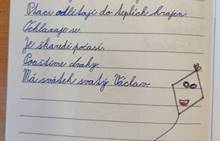 Ptáci odlétají do teplých krajin.
Ochlazuje se.
Je škaredé počasí.
Pouštíme draky.
Má svátek svatý Václav.